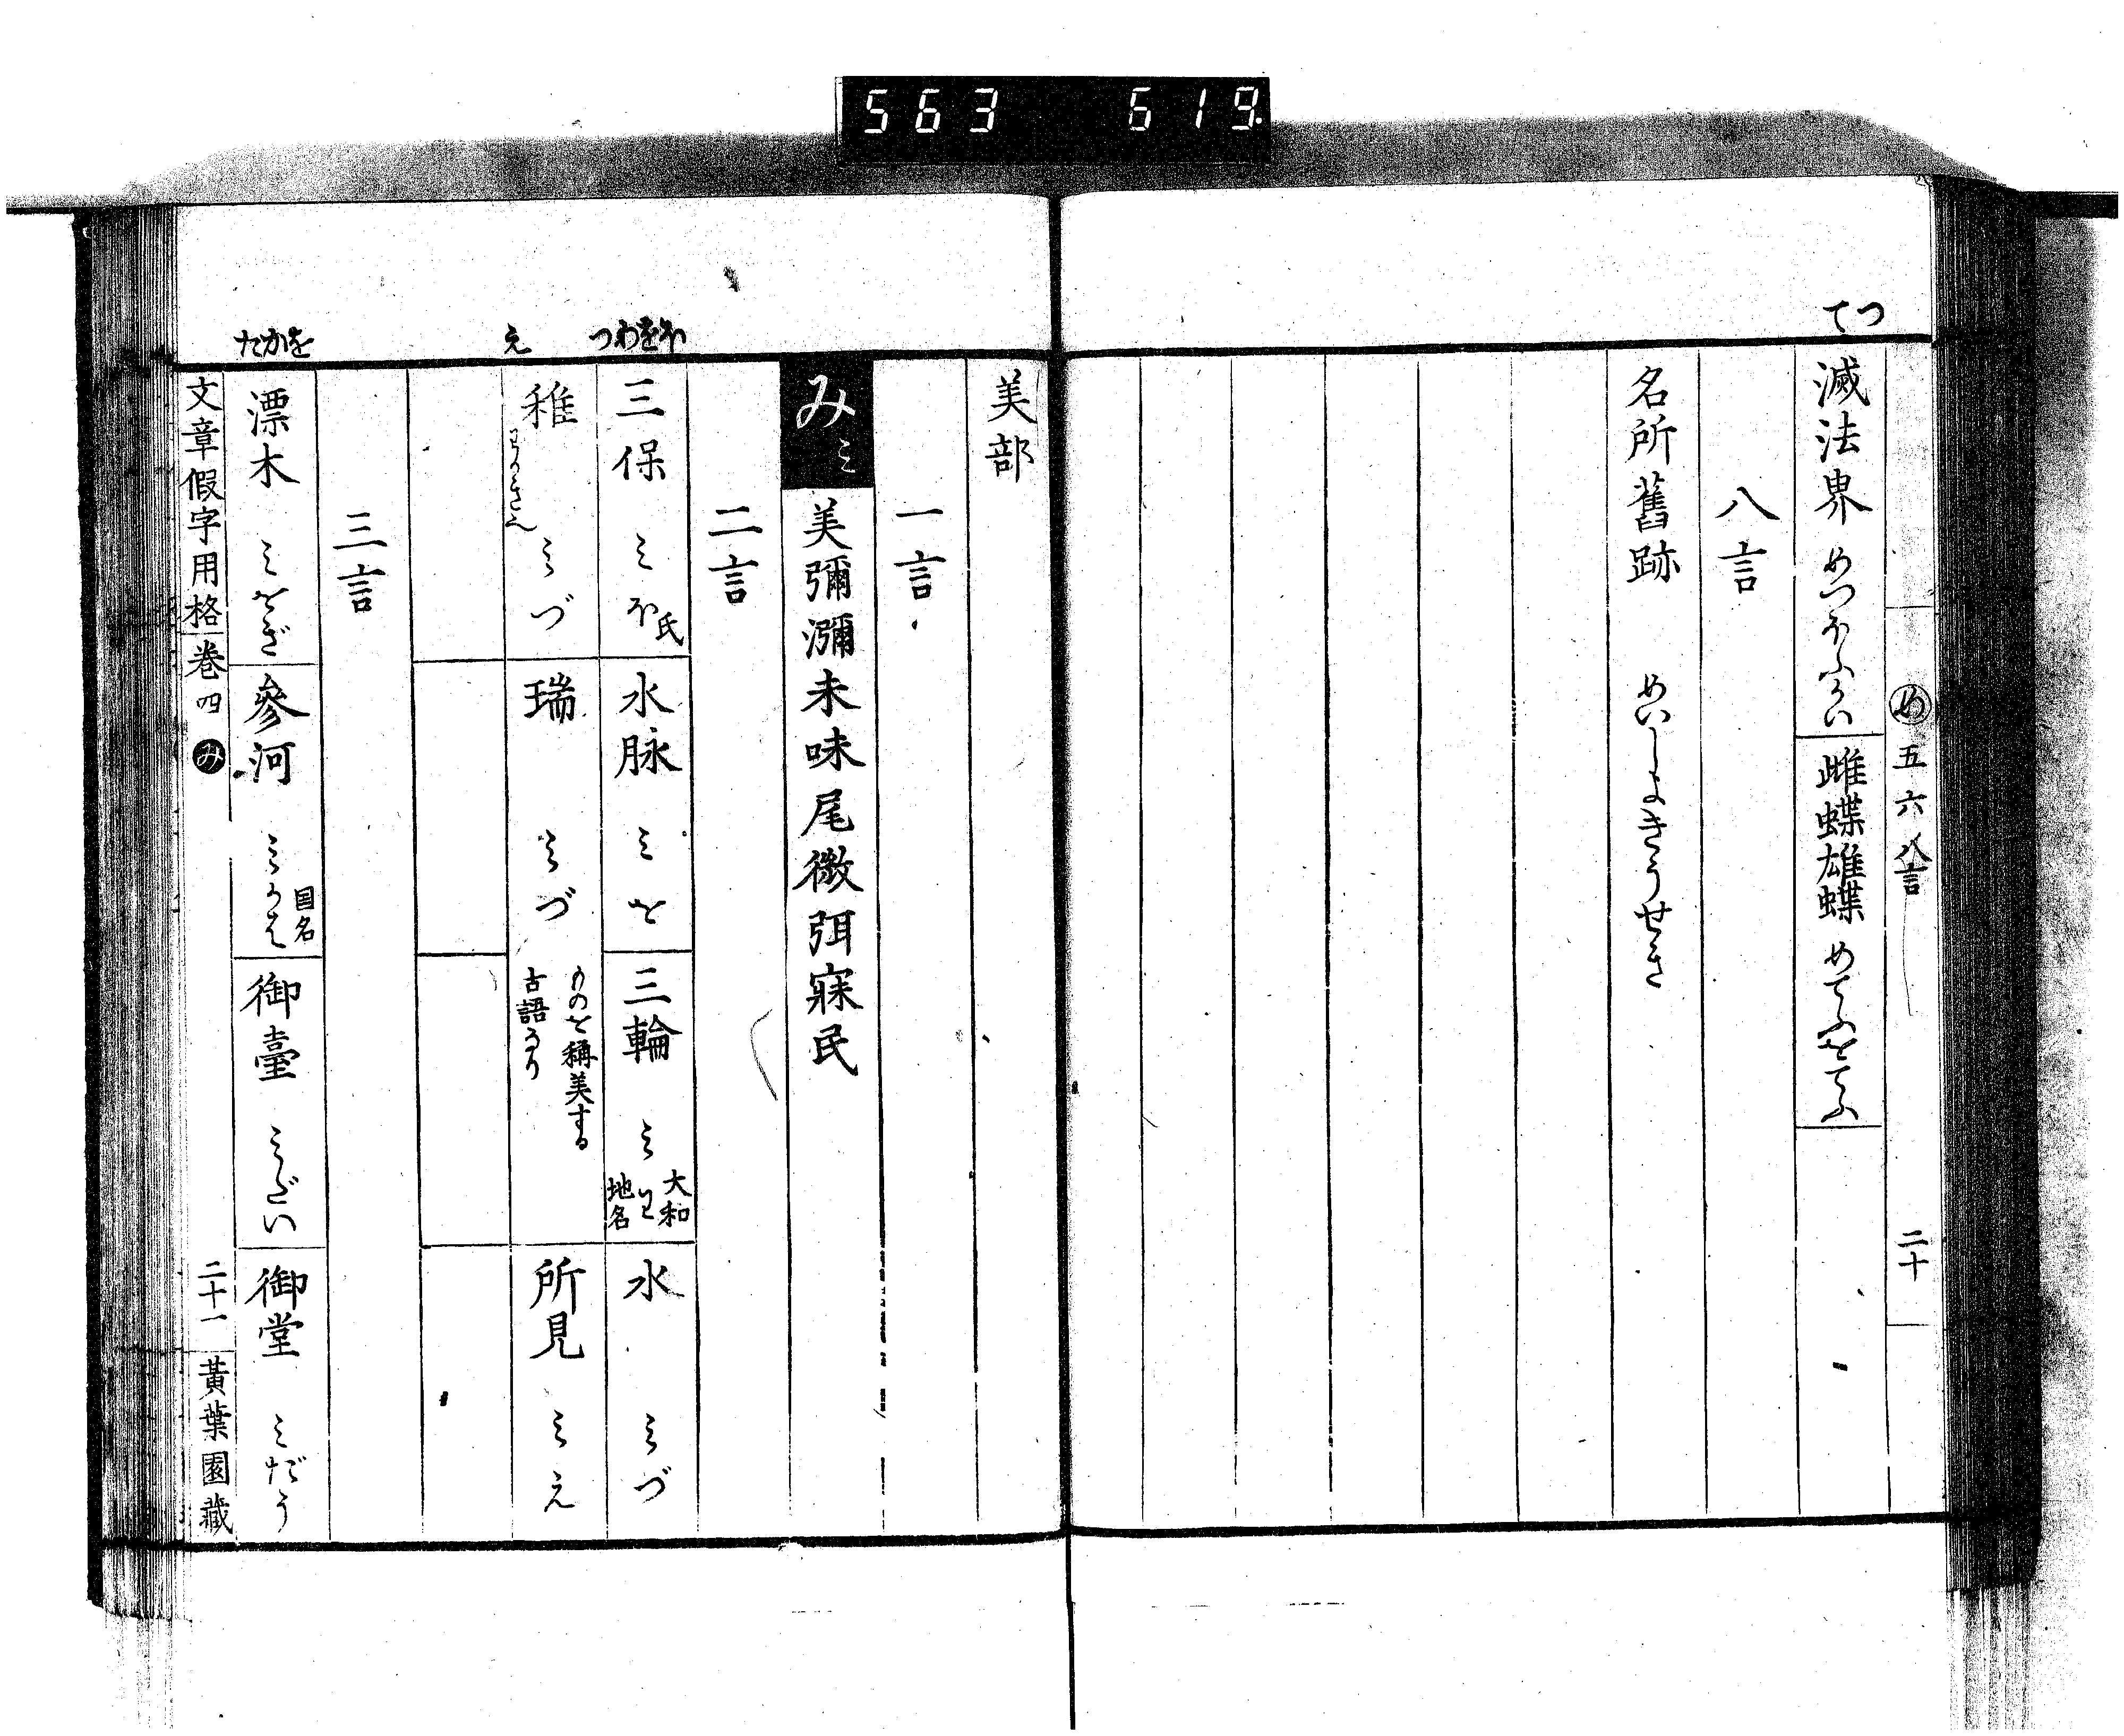 563 619
つ て
め 五六八言 二十
滅法界 めつほふかい
雌蝶雄蝶 めてふをてふ
八言
名所舊跡 めいしよきうせき
美部
一言
み ミ 美彌瀰未味尾微弭寐民
二言
ほ を わ つ
三保 みほ 氏
水脉 みを
三輪 みわ 大和地名
水 みづ
え
稚 みづ わかきえ
瑞 みづ ものを稱美する古語なり
所見 みえ
三言
を か た
漂木 みをぎ
參河 みかは 国名
御臺 みだい
御堂 みだう
文章假字用格 巻四 み 二十一 黃葉園藏